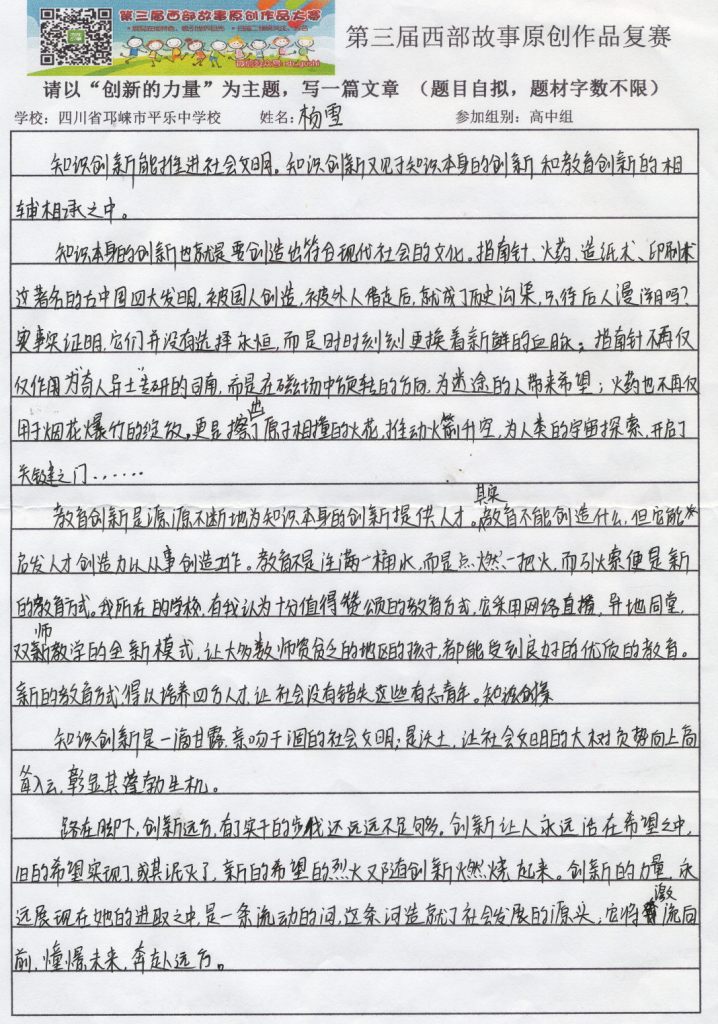 第三届西部故事原创作品大赛
第三届西部故事原创作品复赛
请以“创新的力量”为主题，写一篇文章 （题目自拟，题材字数不限）
学校：四川省邛崃市平乐中学校 姓名：杨雪 参加组别：高中组
知识创新能推进社会文明。知识创新又见于知识本身的创新和教育创新的相
辅相承之中。
知识本身的创新也就是要创造出符合现代社会的文化。指南针、火药、造纸术、印刷术
这著名的古中国四大发明，被国人创造，被外人借走后，就成了历史沟渠，只待后人漫泪吗？
实事实证明，它们并没有选择永恒，而是时时刻刻更换着新鲜的血脉；指南针不再仅
仅作用为“奇人异士”专研的司南，而是在磁场中旋转的方向，为迷途的人带来希望；火药也不再仅
用于烟花爆竹的绽放，更是擦出了原子相撞的火花，推动火箭升空，为人类的宇宙探索，开启了
关键之门……
教育创新是源源不断地为知识本身的创新提供人才。其实教育不能创造什么，但它能
启发人才创造力以从事创造工作。教育不是注满一桶水，而是点燃一把火，而引火索便是新
的教育方式。我所在的学校，有我认为十分值得赞颂的教育方式，它采用网络直播，异地同堂，
双师教学的全新模式，让大多数师资贫乏的地区的孩子，都能受到良好的优质的教育。
新的教育方式得以培养四方人才，让社会没有错失这些有志青年。
知识创新是一滴甘露，亲吻干涸的社会文明；是沃土，让社会文明的大树负势向上高
耸入云，彰显其蓬勃生机。
路在脚下，创新远方，有了实干的步伐还远远不足够。创新让人永远活在希望之中，
旧的希望实现了，或其泯灭了，新的希望的烈火又随创新火燃烧起来。创新的力量，永
远展现在她的进取之中，是一条流动的河，这条河造就了社会发展的源头；它将激流向
前，憧憬未来，奔赴远方。